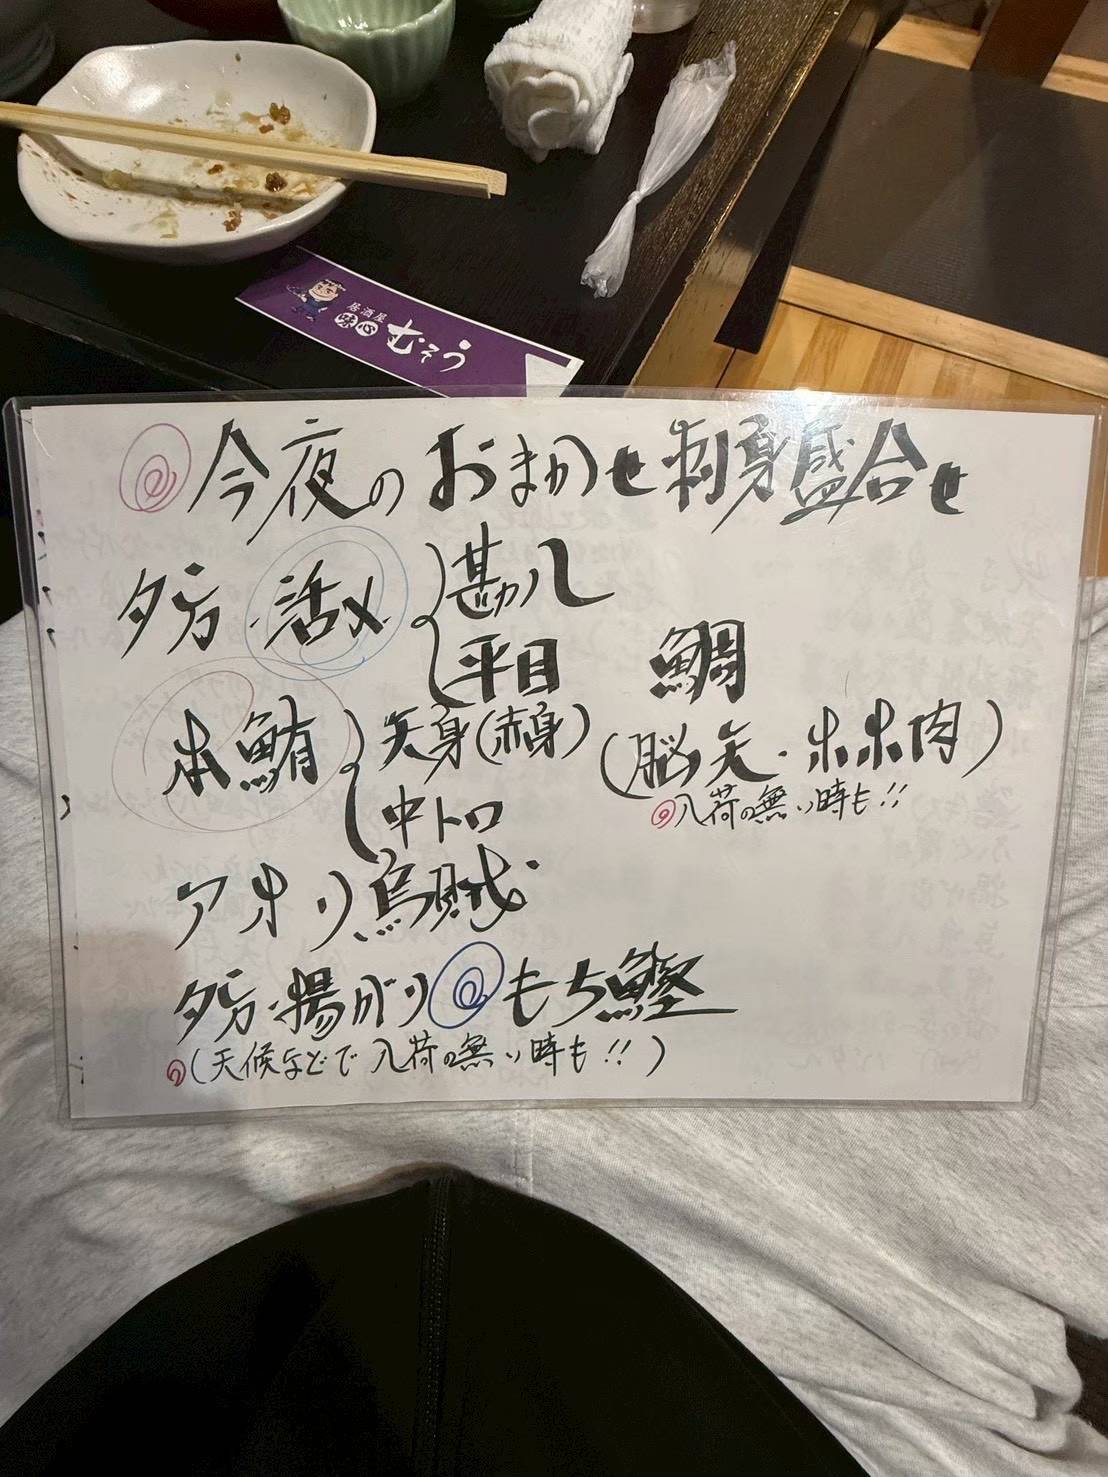 居酒屋
味心 むそう
今夜のおまかせ刺身盛合せ
夕方・活〆 勘八
平目 鯛
本鮪 天身(赤身) (脳天・ホホ肉)
中トロ 入荷の無い時も!!
アオリ烏賊
夕方・揚がり もち鰹
(天候などで入荷の無い時も!!)